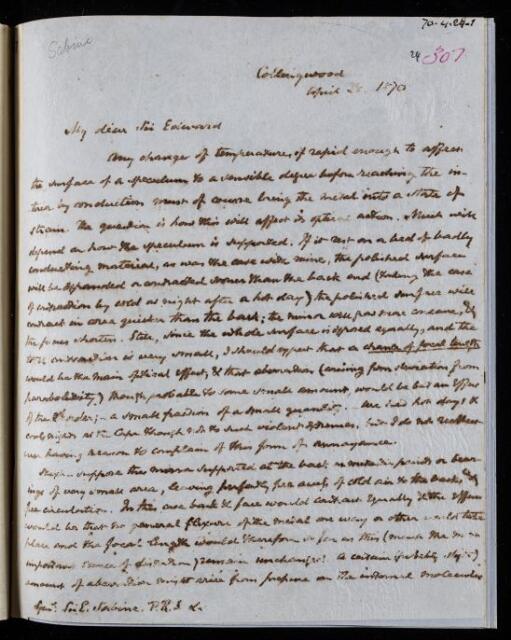 70-4-24-1
Sabine
24 307
Collingwood
April 1870
My dear Sir Edward
Any change of temperature, if rapid enough to affect
the surface of a speculum to a sensible degree before reaching the in-
terior by conduction must of course bring the metal into a state of
strain. The question is how this will affect its optical action. Much will
depend on how the speculum is supported. If it rest on a bed of badly
conducting material, as was the case with mine, the polished surface
will be expanded or contracted more than the back and (taking the case
of contraction by cold as night after a hot day) the polished surface will
contract in area quicker than the back; the mirror will grow more concave, &
the focus shorten. Still, since the whole surface is exposed equally, and the
contraction is very small, I should expect that a change of focal length
would be the main optical effect, & that aberration (arising from deviation from
parabolicity) though probable to some small amount, would be but an effect
of the 2d order; a small fraction of a small quantity. We had hot days &
cool nights at the Cape though not to such violent extremes, but I do not recollect
ever having reason to complain of this form of annoyance.
suppose the mirror supported at the back on certain points or bear-
ings of very small area, leaving perfectly free access of cold air to the back, &
free circulation. In this case back & face would contract equally & the effect
would be that no general flexure of the metal one way or other would take
place and the focal length would therefore so far as this (much the more
important source of deviation) remain unchanged. A certain
amount of aberration might arise from pressure on the internal molecules
Genl. Sir E. Sabine. P.R.S. &c